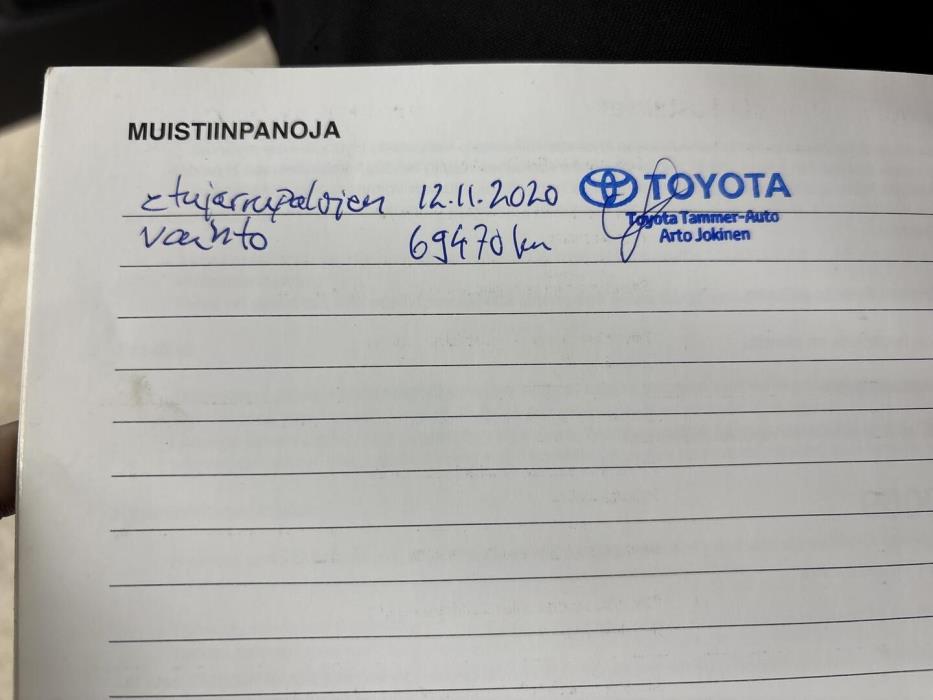 MUISTIINPANOJA
etujarrupalojen 12.11.2020 TOYOTA
Toyota Tammer-Auto
vaihto 69470 km Arto Jokinen